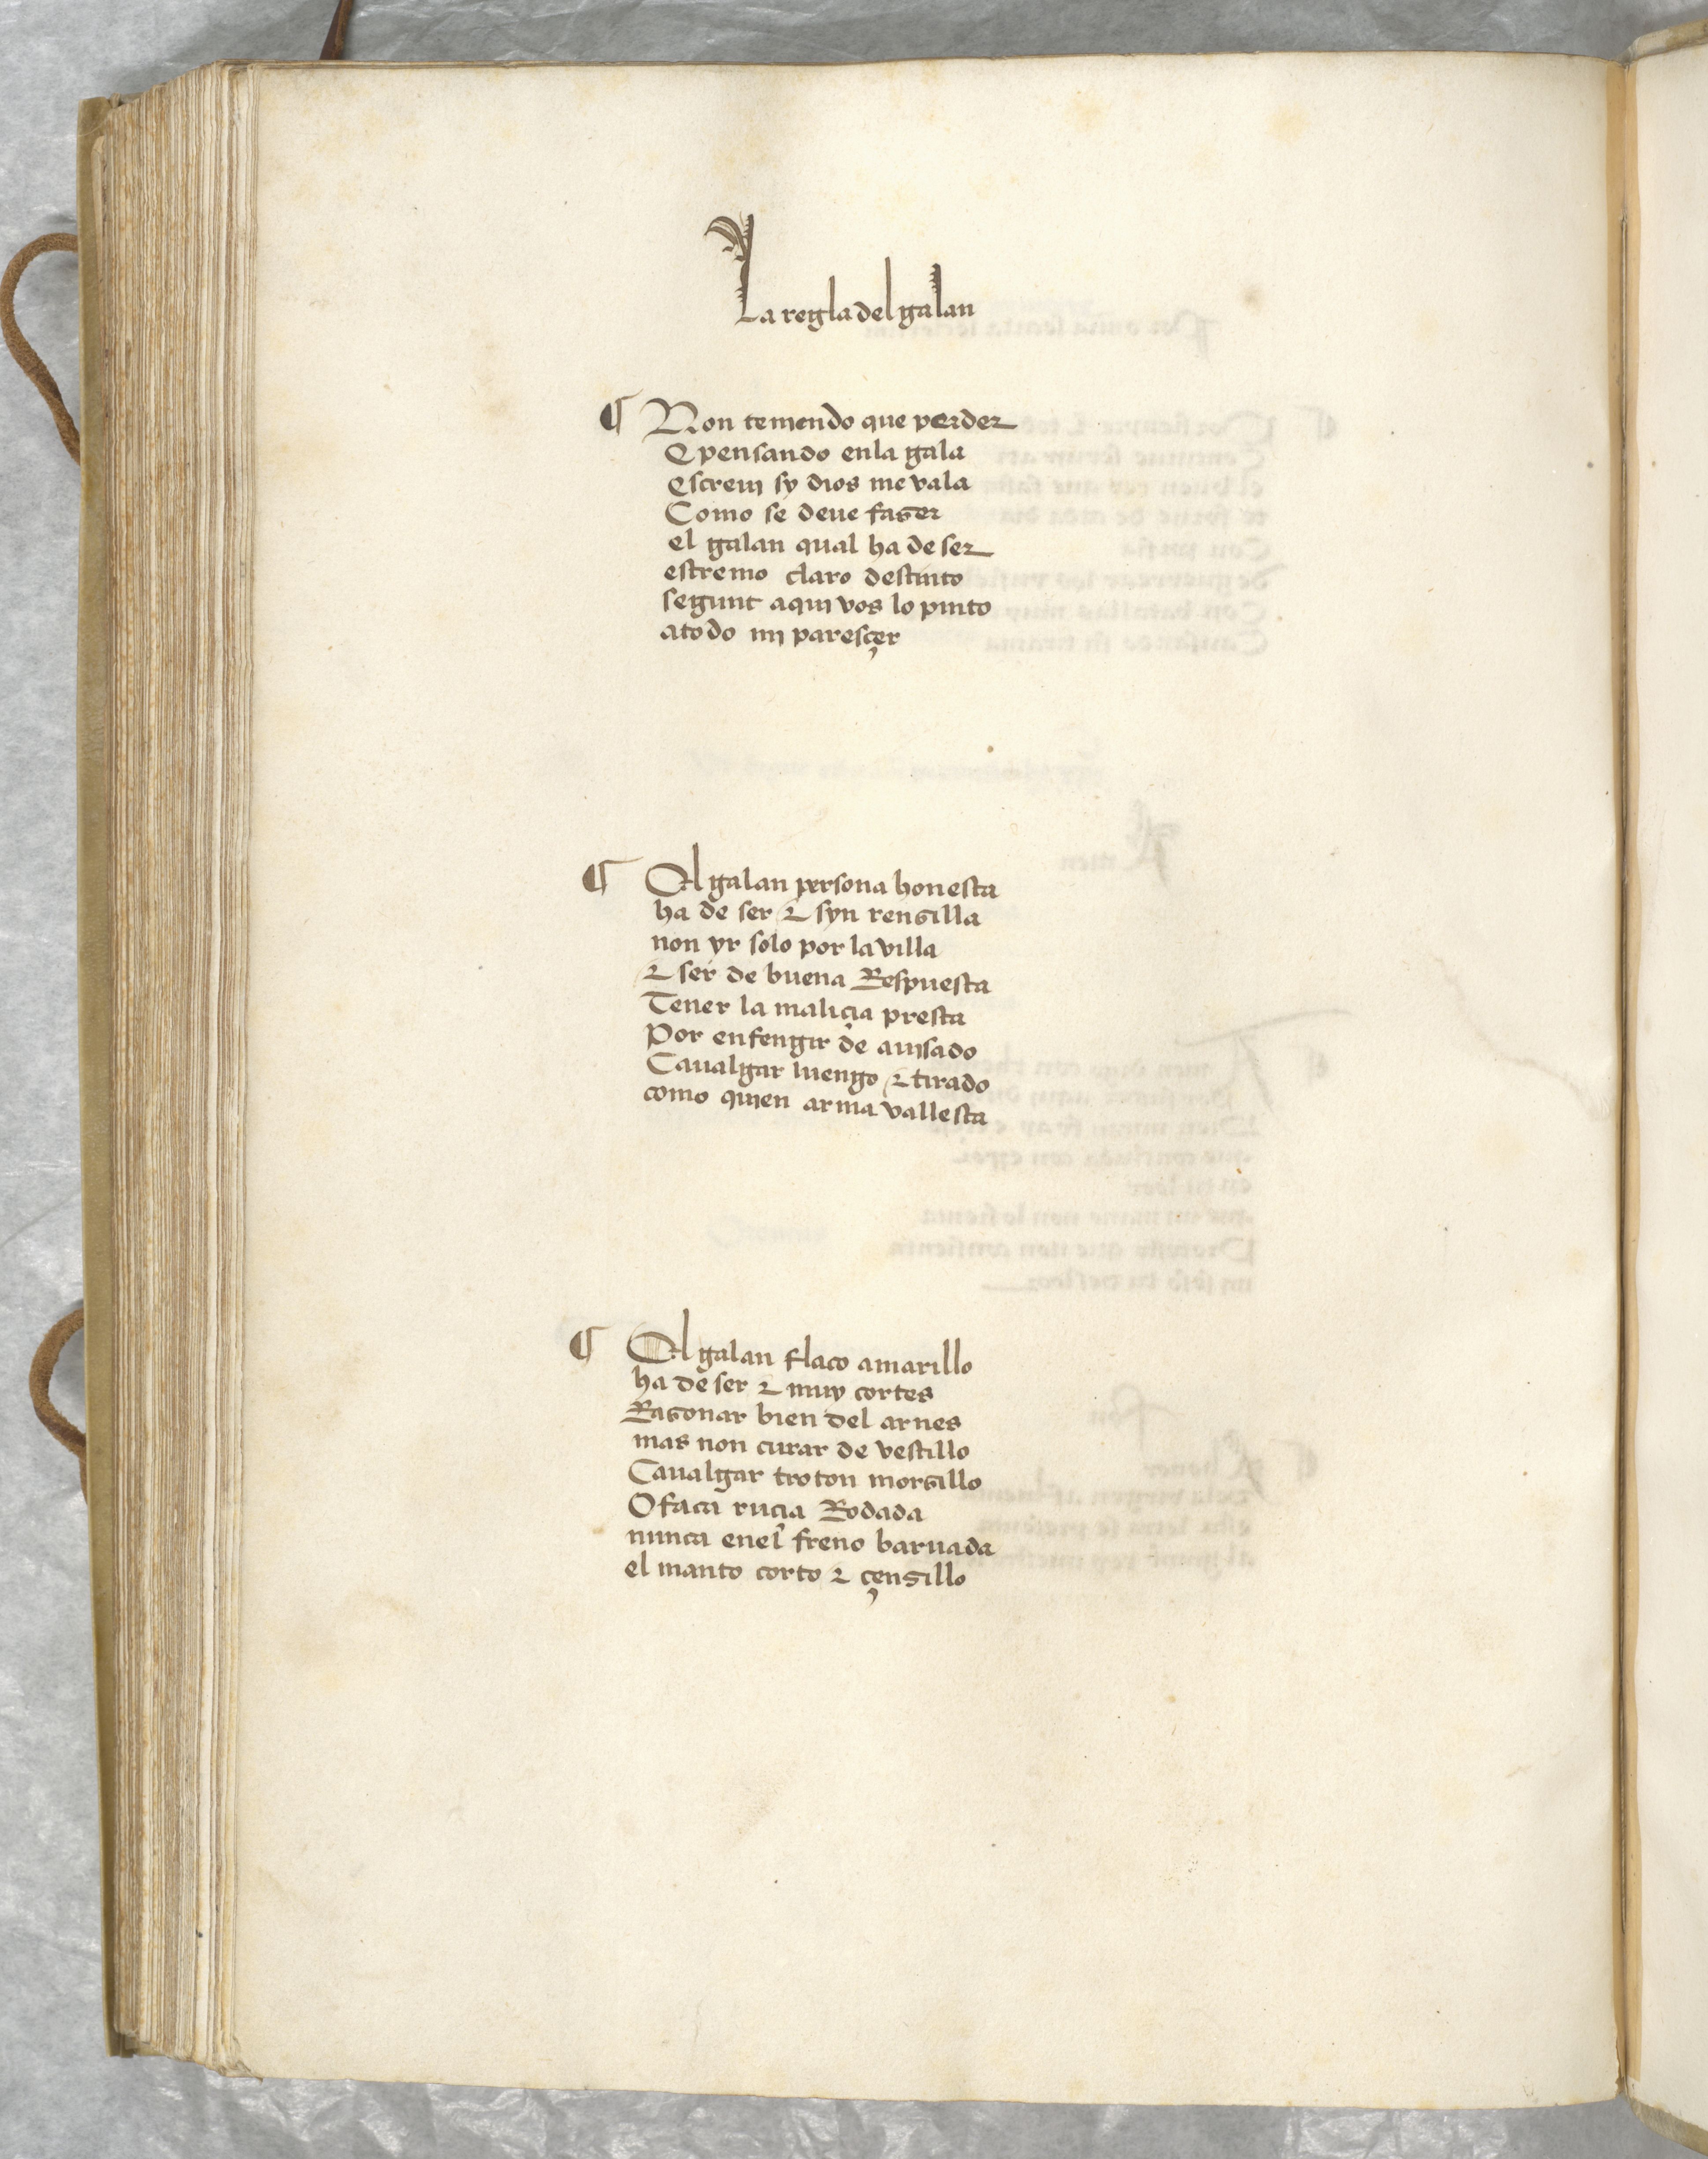 La regla del galan
¶ Non teniendo que perder
E pensando enla gala
escreui sy dios me vala
Como se deue fazer
el galan qual ha de ser
estremo claro destinto
segunt aqui vos lo pinto
atodo mi paresçer
¶ El galan persona honesta
ha de ser & syn renzilla
non yr solo por la villa
& ser de buena Respuesta
Tener la maliçia presta
Por enfengir de auisado
Caualgar luengo & tirado
como quien arma vallesta
¶ El galan flaco amarillo
ha de ser & muy cortes
Razonar bien del arnes
mas non curar de vestillo
Caualgar troton morzillo
O faca ruçia Rodada
nunca enel freno baruada
el manto corto & çenzillo